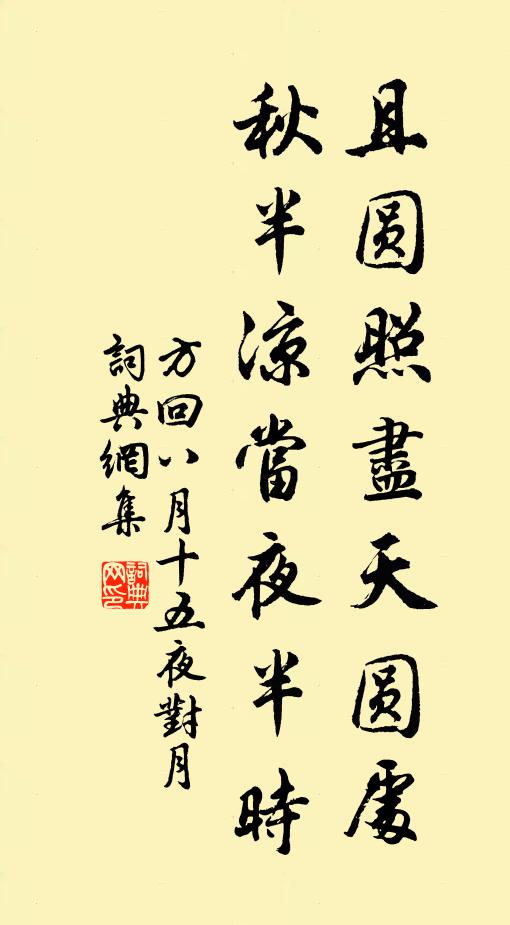 且圓照盡天圓處
秋半涼當夜半時
方回八月十五夜對月
詞典網集
詞典网印